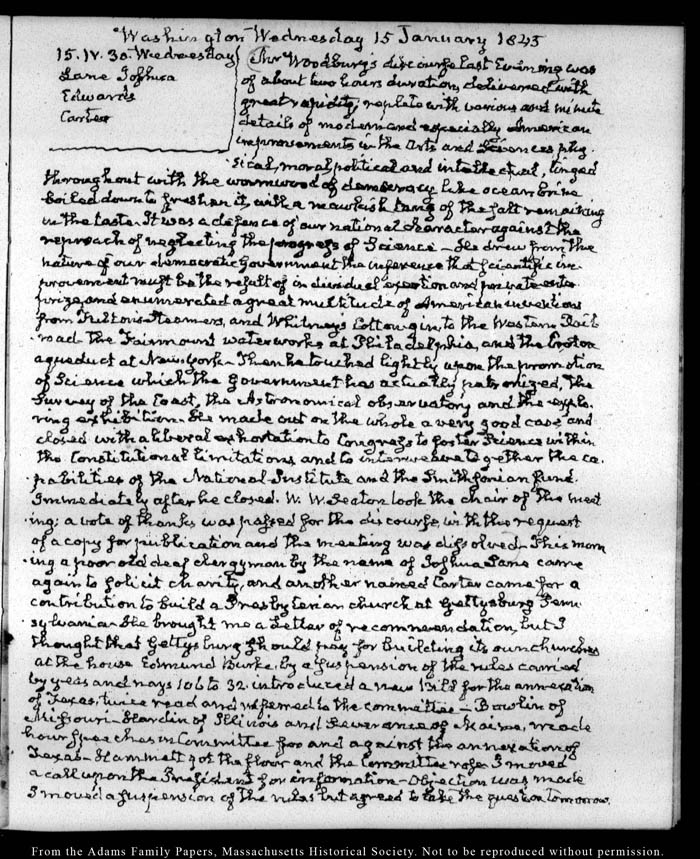 Washington Wednesday 15 January 1845
15. IV. 30. Wednesday
Lane Joshua
Edwards
Carter
Mr Woodbury's discourse last Evening was
of about two hours duration, delivered with
great rapidity; replete with various and minute
details of modern and especially American
improvements in the Arts and Sciences phy-
sical, moral, political and intellectual, tinged
throughout with the wormwood of democracy like ocean brine
boiled down to freshen it, with a mawkish tang of the salt remaining
in the taste. It was a defence of our national character against the
reproach of neglecting the progress of Science - He drew from the
nature of our democratic Government the inference that scientific im-
provement must be the result of individual exertion and private enter-
prize, and enumerated a great multitude of American inventions
from Fulton's steamers, and Whitney's Cotton gin, to the Western Rail
road the Fairmount waterworks at Philadelphia, and the Croton
aqueduct at New-York - Then he touched lightly upon the promotion
of Science which the Government has actually patronized, the
Survey of the Coast, the Astronomical observatory and the explo-
ring exhibition. He made out on the whole a very good case and
closed with a liberal exhortation to Congress to foster Science within
the Constitutional limitations, and to interweave together the ca-
pabilities of the National Institute and the Smithsonian fund.
Immediately after he closed. W. W. Seaton took the chair of the meet
ing; a vote of thanks was passed for the discourse, with the request
of a copy for publication and the meeting was dissolved - This morn
ing a poor old deaf clergyman by the name of Joshua Lane came
again to solicit charity, and another named Carter came for a
contribution to build a Presbyterian church at Gettysburg Penn-
sylvania - He brought me a Letter of recommendation, but I
thought that Gettysburg should pay for building its own churches
At the house Edmund Burke, by a suspension of the rules carried
by yeas and nays 106 to 32. introduced a new Bill for the annexation
of Texas, twice read and referred to the committee - Bowlin of
Missouri - Hardin of Illinois and Severance of Maine, made
hour speeches in Committee for and against the annexation of
Texas - Hammett got the floor and the Committee rose. I moved
a call upon the President for information - Objection was made
I moved a suspension of the rules but agreed to take the question tomorrow.
From the Adams Family Papers, Massachusetts Historical Society. Not to be reproduced without permission.